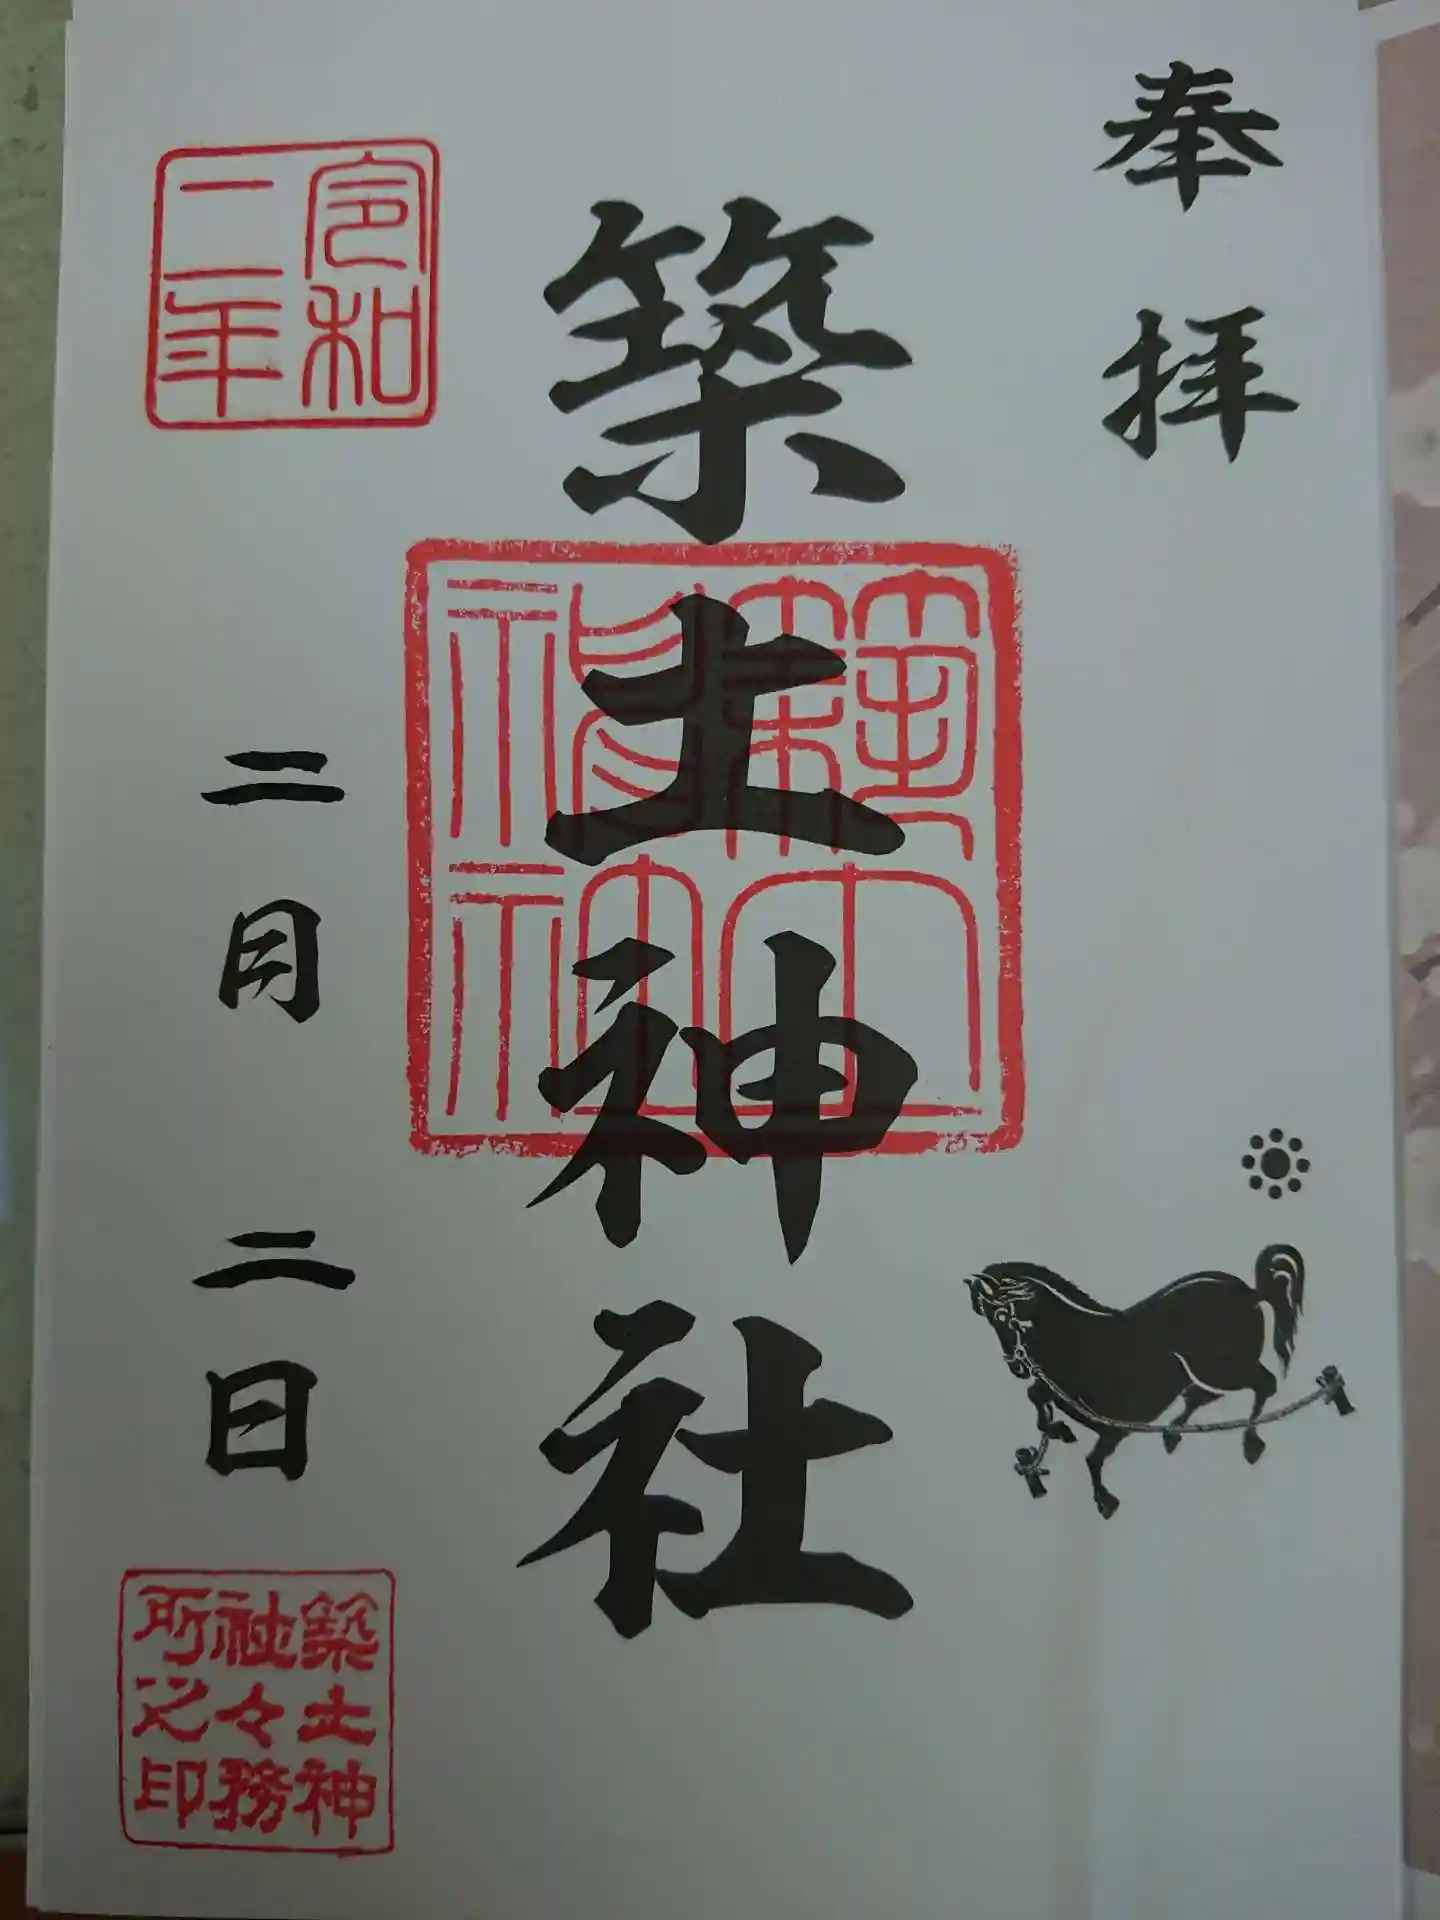 奉拝
築土神社
令和
二年
二月二日
築土神
社々務
所之印